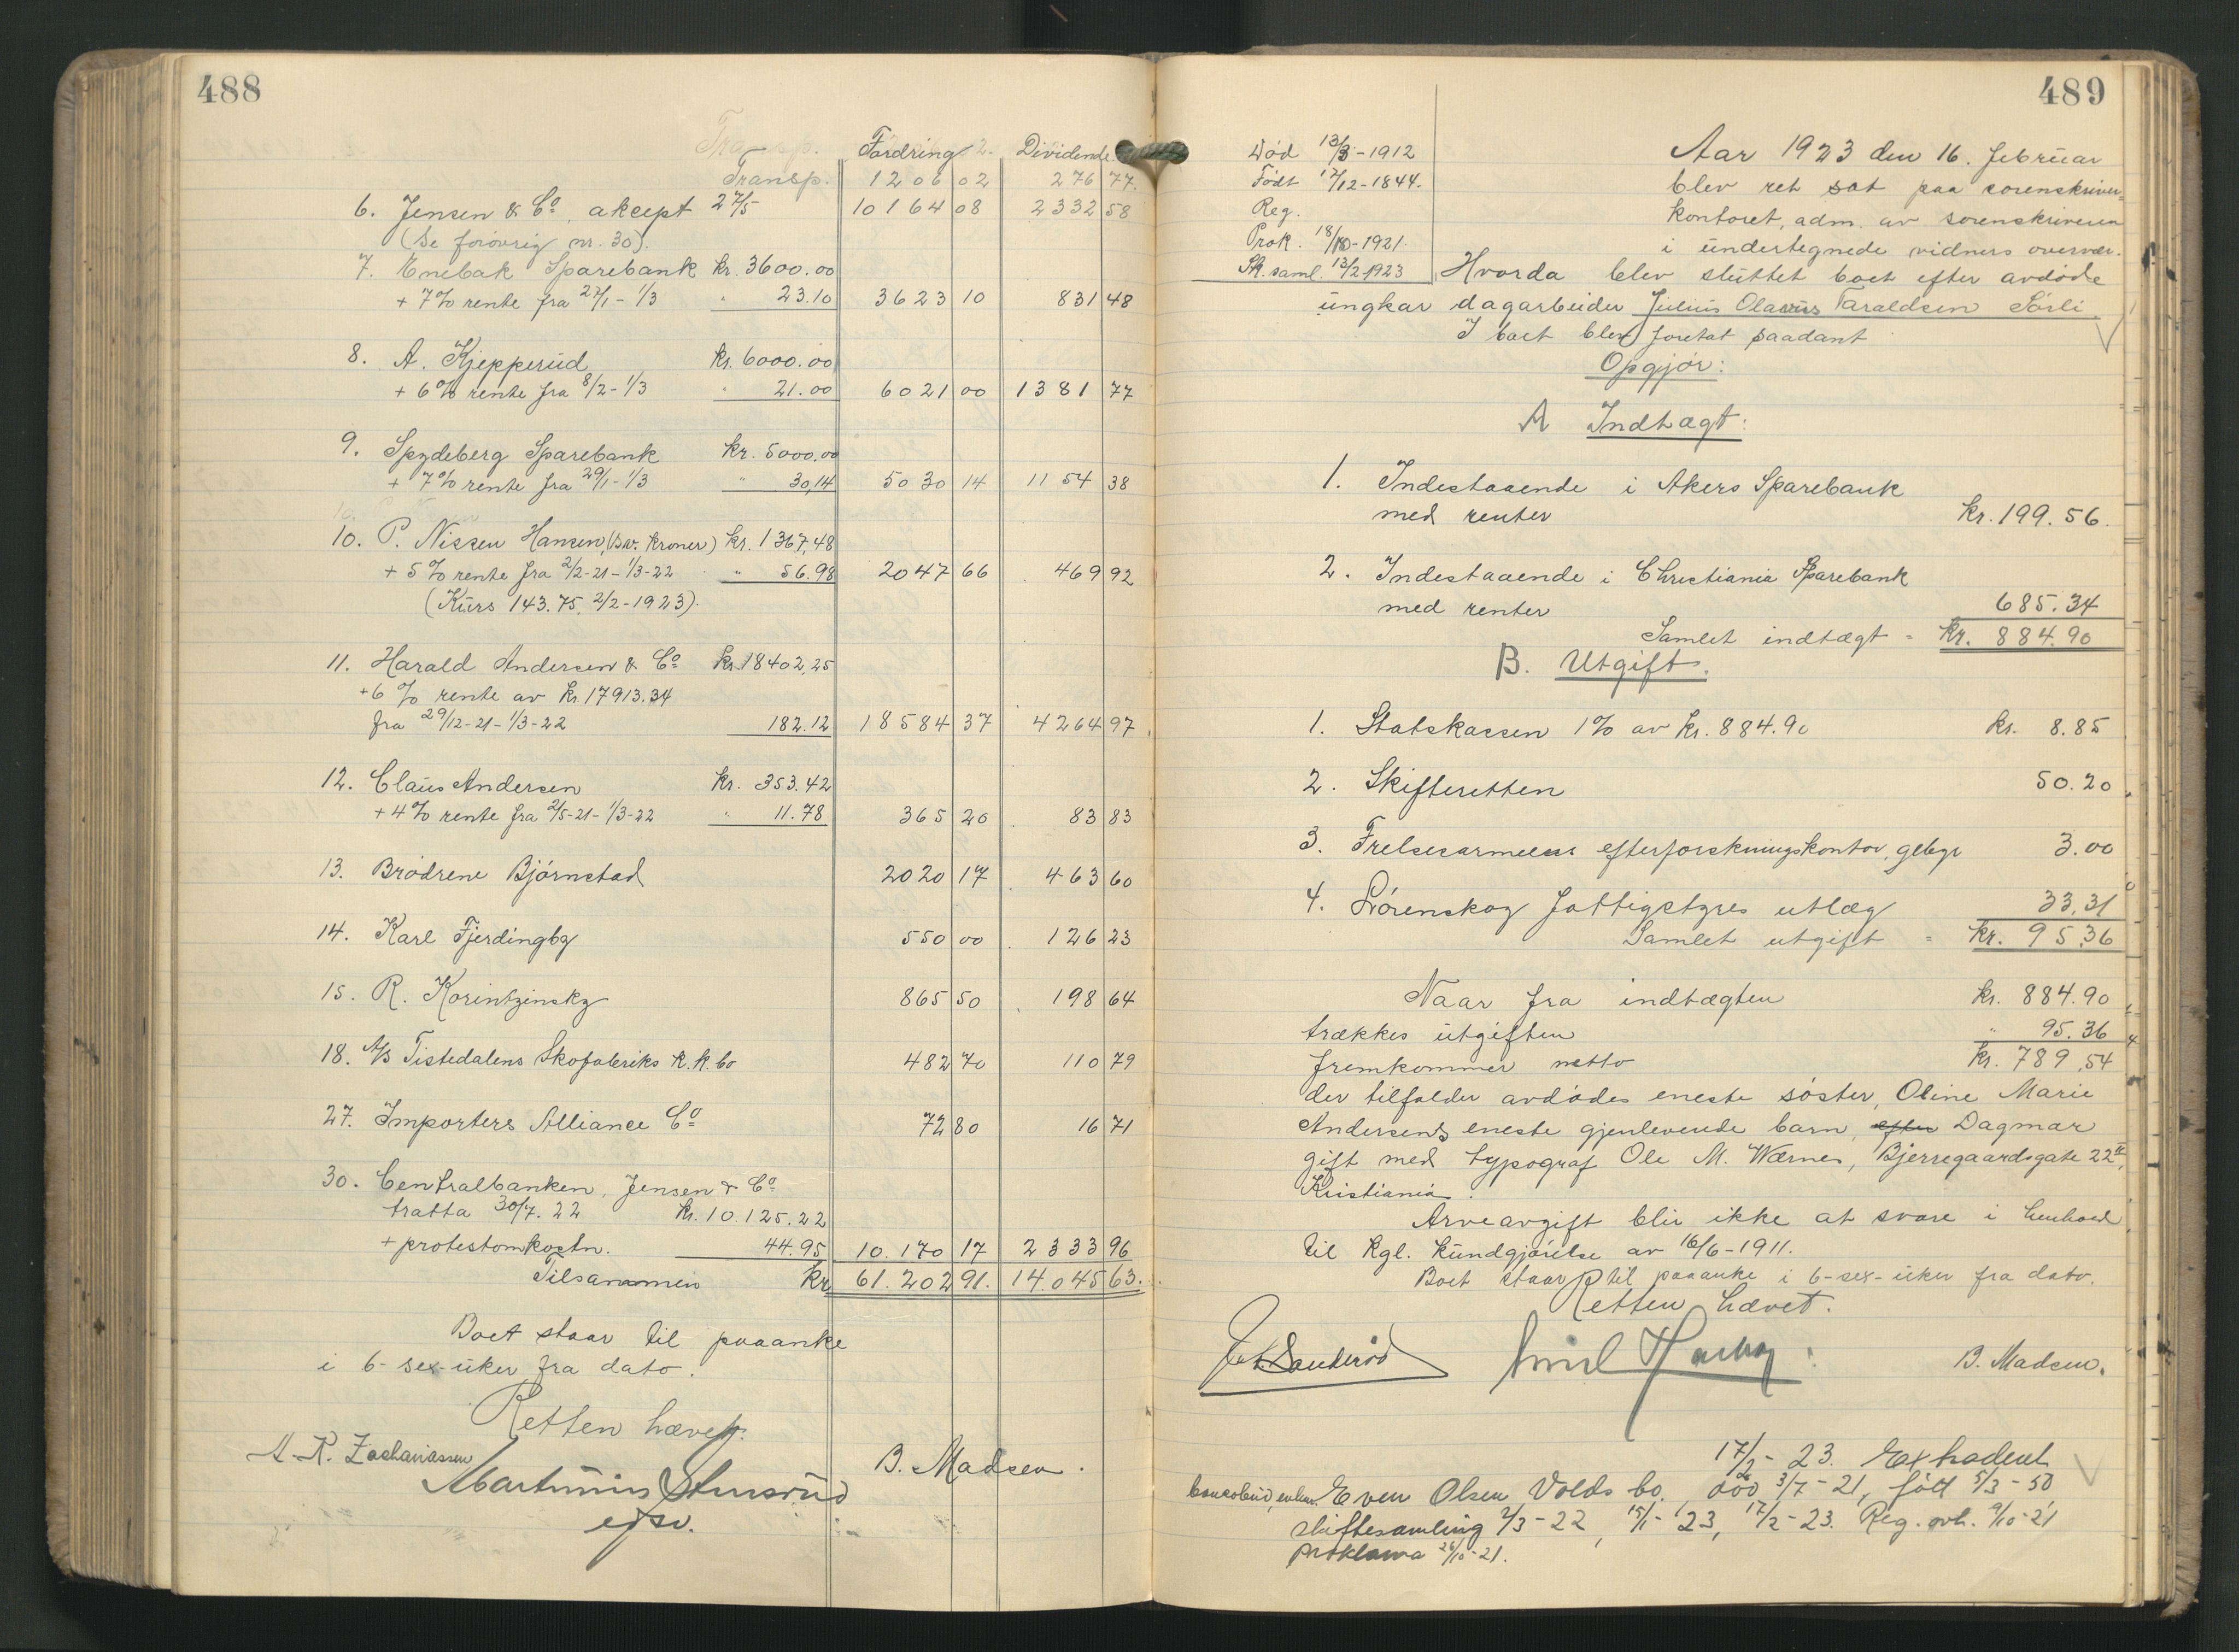 488
Fordring Dividende
Transp. 1206 02 276 77.
6. Jensen & Co, aksept 27/5 10164 08 2332 58
(Se forøvrig nr. 30).
7. Enebak Sparebank kr. 3600.00
+ 7% rente fra 27/1 - 1/3 " 23.10 3623 10 831 48
8. A. Kjepperud kr. 6000.00
+ 6% rente fra 8/2 - 1/3 " 21.00 6021 00 1381 77
9. Spydeberg Sparebank kr. 5000.00
+ 7% rente fra 29/1 - 1/3 " 30,14 5030 14 1154 38
10. P. Nissen Hansen, (sv. kroner) kr. 1367,48
+ 5% rente fra 2/2-21 - 1/3-22 " 56.98 2047 66 469 92
(Kurs 143.75, 2/2-1923).
11. Harald Andersen & Co kr. 18402,25
+6% rente av kr. 17913.34
fra 29/12-21 - 1/3-22 182.12 18584 37 4264 97
12. Claus Andersen kr. 353.42
+ 4% rente fra 2/5-21 - 1/3-22 " 11.78 365 20 83 83
13. Brødrene Bjørnstad 2020 17 463 60
14. Karl Fjerdingby 550 00 126 23
15. R. Korintzinsky 865 50 198 64
18. A/S Tistedalens Skofabriks k.k.bo 482 70 110 79
27. Importers Alliance Co 72 80 16 71
30. Centralbanken, Jensen & Co
tratta 30/7. 22 kr. 10.125.22
+ protestomkostn. 44.95 10.170 17 2333 96
Tilsammen kr 61.202 91. 14.045 63.
Boet staar til paaanke
i 6-sex-uker fra dato.
Retten hævet.
A. R. Zachariassen
B. Madsen.
489
Død 13/3-1912
Født 17/12-1844.
Reg.
Prok. 18/10-1921.
Sk.saml. 13/2-1923
Aar 1923 den 16. februar
blev ret sat paa sorenskriver-
kontoret, adm. av sorenskriveren
i undertegnede vidners overvær.
Hvorda blev sluttet boet efter avdøde
ungkar dagarbeider Julius Olavus Taraldsen Sørli.
I boet blev foretat saadant
Opgjør:
A Indtægt:
1. Indestaaende i Akers Sparebank
med renter kr. 199.56.
2. Indestaaende i Christiania Sparebank
med renter 685.34
Samlet indtægt = kr. 884.90
B. Utgift.
1. Statskassen 1% av kr. 884.90 kr. 8.85
2. Skifteretten 50.20
3. Frelsesarmeens efterforskningskontor, gebyr 3.00
4. Lørenskog fattigstyres utlæg 33,31
Samlet utgift = kr. 95,36
Naar fra indtægten kr. 884.90
trækkes utgiften " 95.36
fremkommer netto kr. 789,54
der tilfalder avdødes eneste søster, Oline Marie
Andersens eneste gjenlevende barn, efter Dagmar
gift med typograf Ole M. Wærnes, Bjerregaardsgate 22 II,
Kristiania.
Arveavgift blir ikke at svare i henhold
til kgl. kundgjørelse av 16/6-1911.
Boet staar til paaanke i 6-sex-uker fra dato.
Retten hævet.
B. Madsen.
17/2 - 23. Extradeut
Even Olsen Volds bo. død 3/7-21, født 5/3-50
skiftesamling 2/3-22, 15/1-23, 17/2-23. Reg. avh. 9/10-21
proklama 26/10-21.